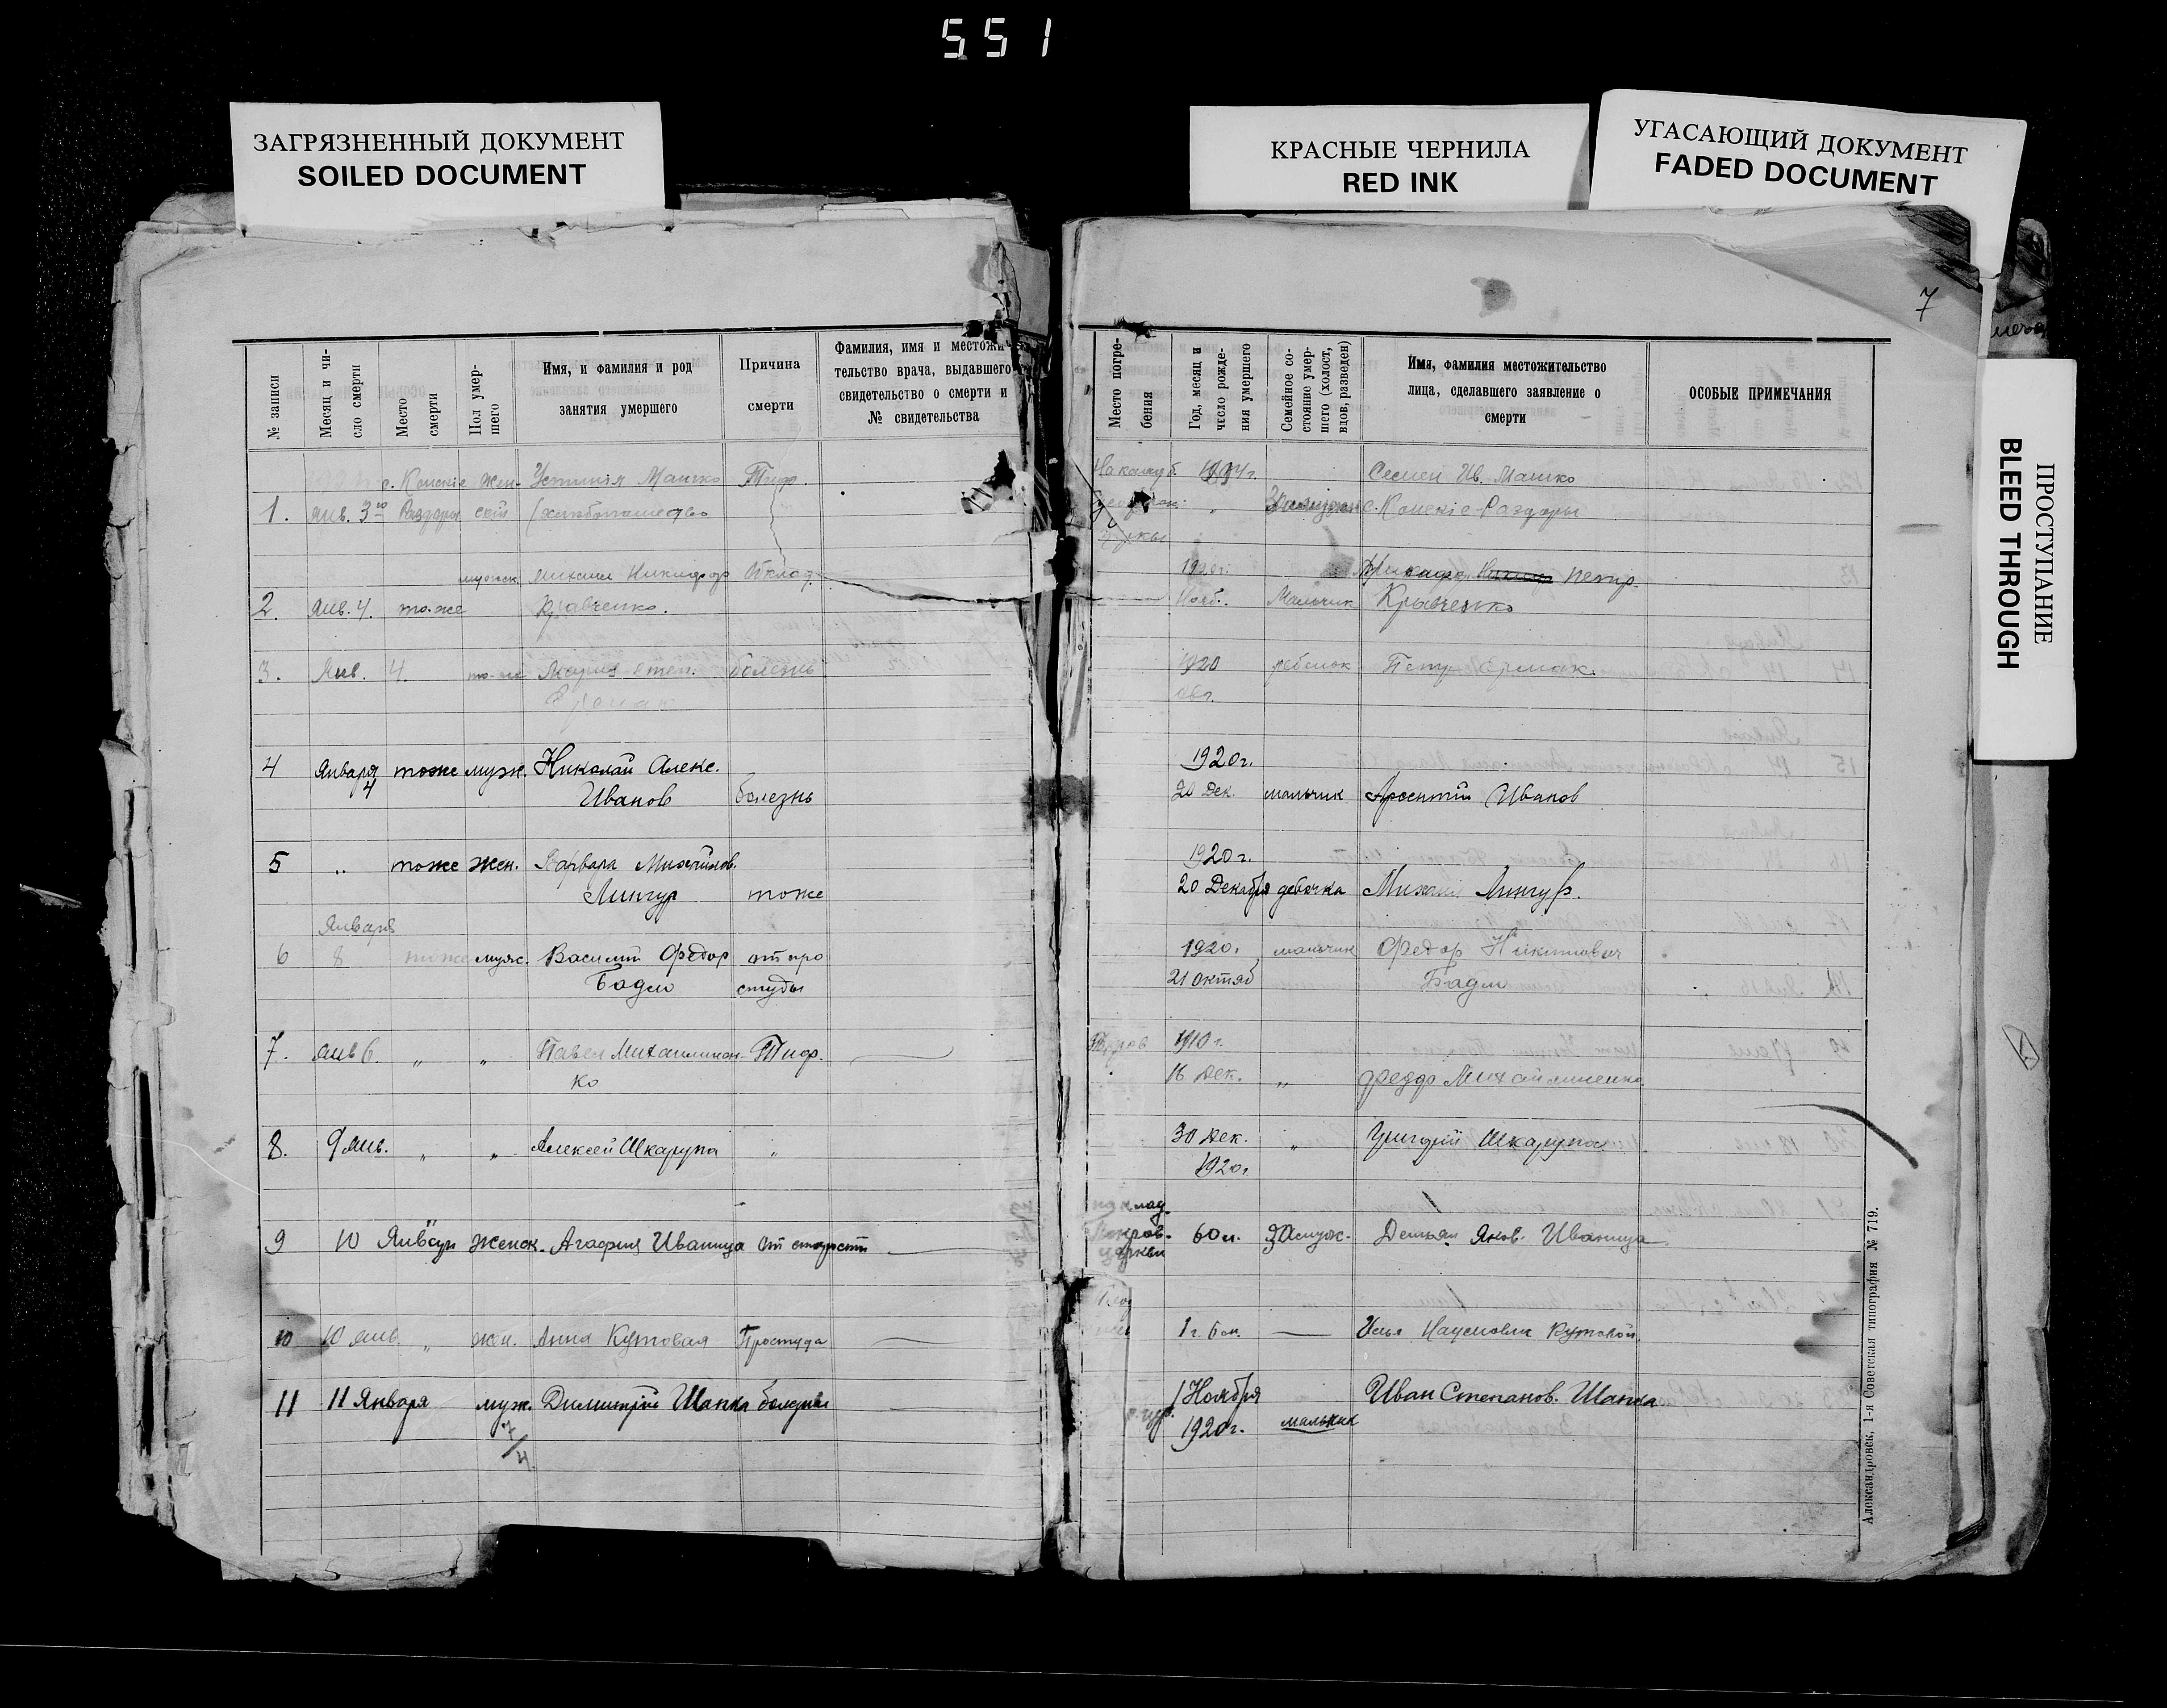 551
ЗАГРЯЗНЕННЫЙ ДОКУМЕНТ
SOILED DOCUMENT
КРАСНЫЕ ЧЕРНИЛА
RED INK
УГАСАЮЩИЙ ДОКУМЕНТ
FADED DOCUMENT
ПРОСТУПАНИЕ
BLEED THROUGH
7
№ записи
Месяц и чи-
сло смерти
Место
смерти
Пол умер-
шего
Имя, и фамилия и род
занятия умершего
Причина
смерти
Фамилия, имя и местожи-
тельство врача, выдавшего
свидетельство о смерти и
№ свидетельства
Место погре-
бения
Год, месяц и
число рожде-
ния умершего
Семейное со-
стояние умер-
шего (холост,
вдов, разведен)
Имя, фамилия местожительство
лица, сделавшего заявление о
смерти
ОСОБЫЕ ПРИМЕЧАНИЯ
с. Конскіе жен- Устинія Машко Тиф.
Семен Ив. Машко
1. Янв. 3го Раздоры ской
с. Конскіе-Раздоры
Михаил Никифор
1920г. Петр.
2. Янв. 4. то-же Кравченко.
Нояб. Мальчик Кравченко
3. Янв. 4. то-же болезнь
1920 ребенок Петр Ермак.
Ермак
авг.
4 Января тоже муж. Николай Алекс.
1920г.
4 Иванов болезнь
20 Дек. мальчик Арсентий Иванов
5 „ тоже жен. Варвара Михайлов.
1920г.
Лингур тоже
20 Декабря девочка Михаил Лингур.
Января
6 8 тоже муж. Василий Федор от про
1920. мальчик Федор Никитович
Бадло студы
21 октяб Бадло
7. Янв 6. „ „ Павел Михайличен- Тиф.
1910 г.
ко
16 Дек. „ Федор Михайличенко
8. 9 янв. „ „ Алексей Шкарупа „
30 Дек. „ Григорий Шкарупа
1920г.
на клад.
9 10 Января Женск. Агафия Иваница От старости
Покров. 60 л. Замуж. Демьян Яков. Иваница
церкви
10 10 янв. „ жен. Анна Кутовая Простуда
1 г. 6 м. Илья Наумович Кутовой
11 11 Января муж. Димитрий Шапка болезнь
1 Ноября Иван Степанов. Шапка
1920г. мальчик
Александровск, 1-я Советская типография № 719.